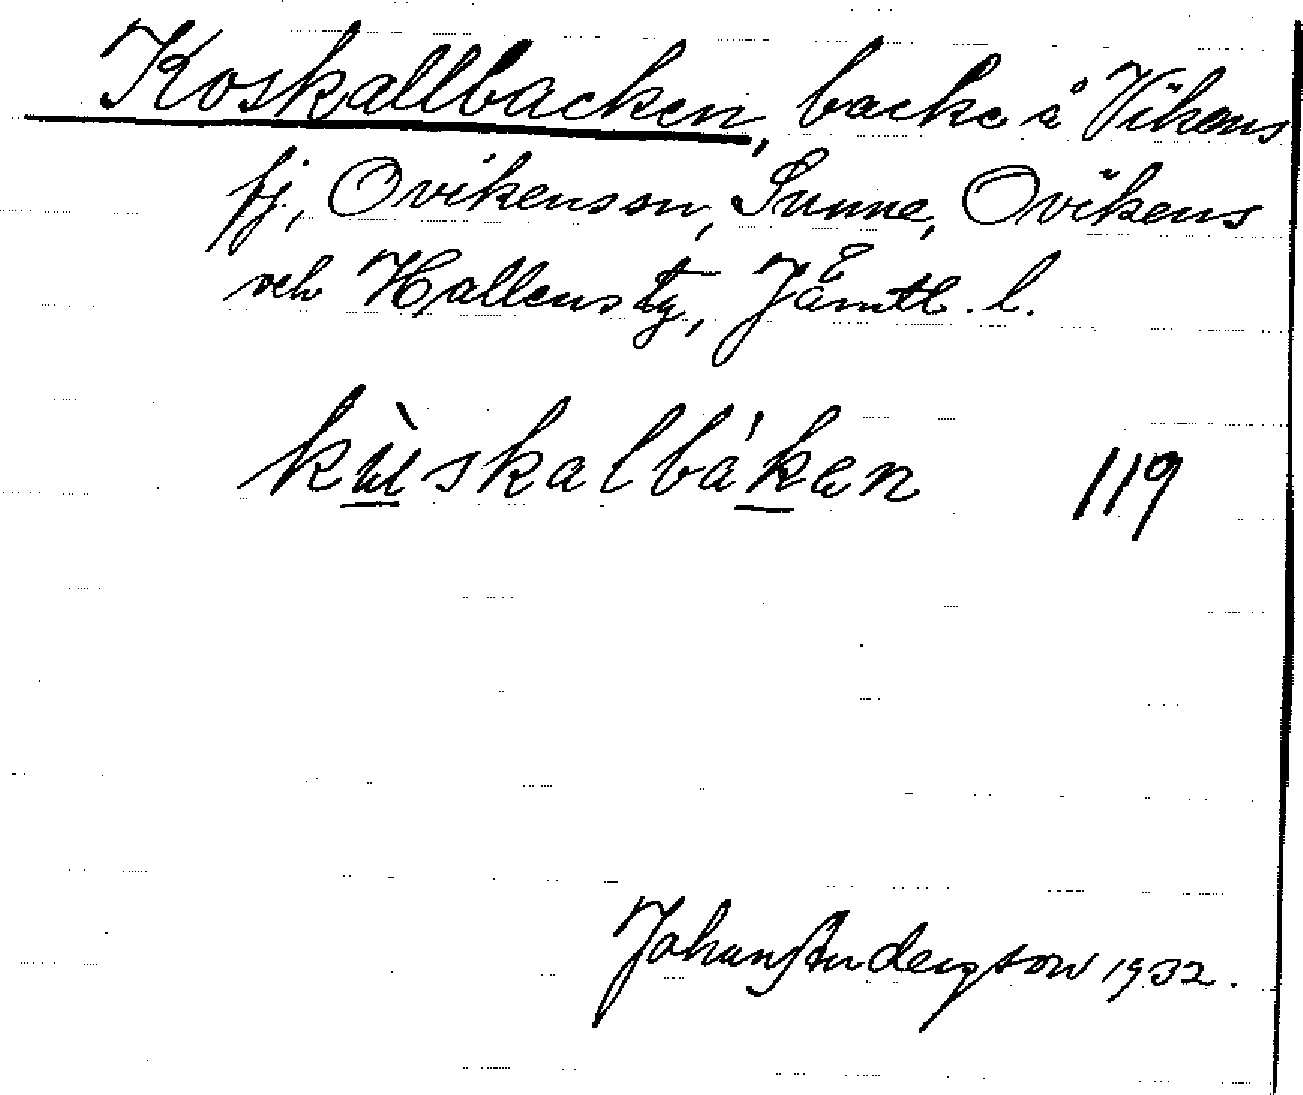 Koskallbacken, backe å Vikens
fj, Ovikensson, Sunne, Ovikens
och Hallens tg, Jämtl. l.
kùskalbákæn 119
Johan Andersson 1932.